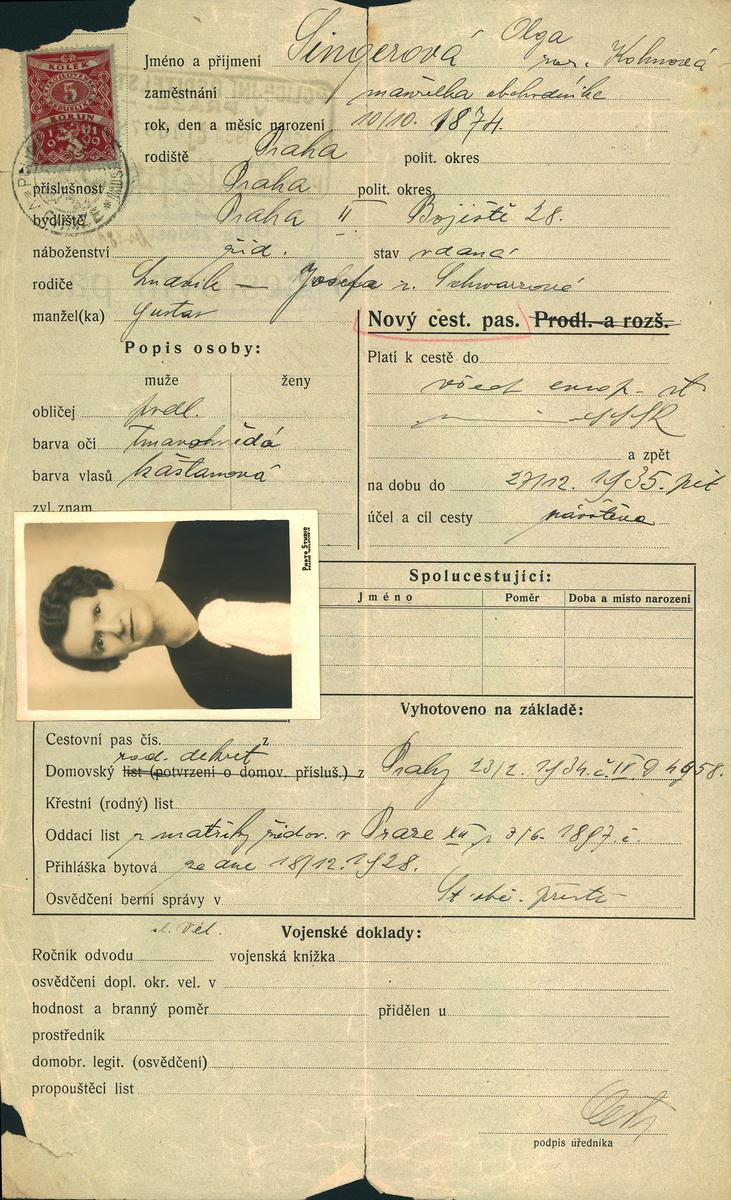 KOLEK
5
KORUN
1919
Jméno a příjmení Singerová Olga roz. Kohnová
zaměstnání manželka obchodníka
rok, den a měsíc narození 10/10. 1874.
rodiště Praha polit. okres
příslušnost Praha polit. okres
bydliště Praha II Bojiště 28.
náboženství žid. stav vdaná
rodiče Ludvík — Josefa r. Schwarzová
manžel(ka) Gustav
Nový cest. pas. Prodl. a rozš.
Popis osoby:
Platí k cestě do
muže ženy
všech evrop. st
obličej podl.
SSSR
barva očí tmavohnědá
a zpět
barva vlasů kaštanová
na dobu do 27/12. 1935. pět
zvl. znam.
účel a cíl cesty návštěva
PHOTO STUDIO
Spolucestující:
Jméno Poměr Doba a místo narození
Vyhotoveno na základě:
Cestovní pas čís. z
dekret
Domovský list (potvrzení o domov. přísluš.) z Prahy 23/2. 1934. č. IV
Křestní (rodný) list
Oddací list z matriky židov. v Praze XII 1897. č.
Přihláška bytová ze dne 18/12. 1928.
Osvědčení berní správy v
Vojenské doklady:
Ročník odvodu vojenská knížka
osvědčení dopl. okr. vel. v
hodnost a branný poměr přidělen u
prostředník
domobr. legit. (osvědčení)
propouštěcí list
podpis úředníka